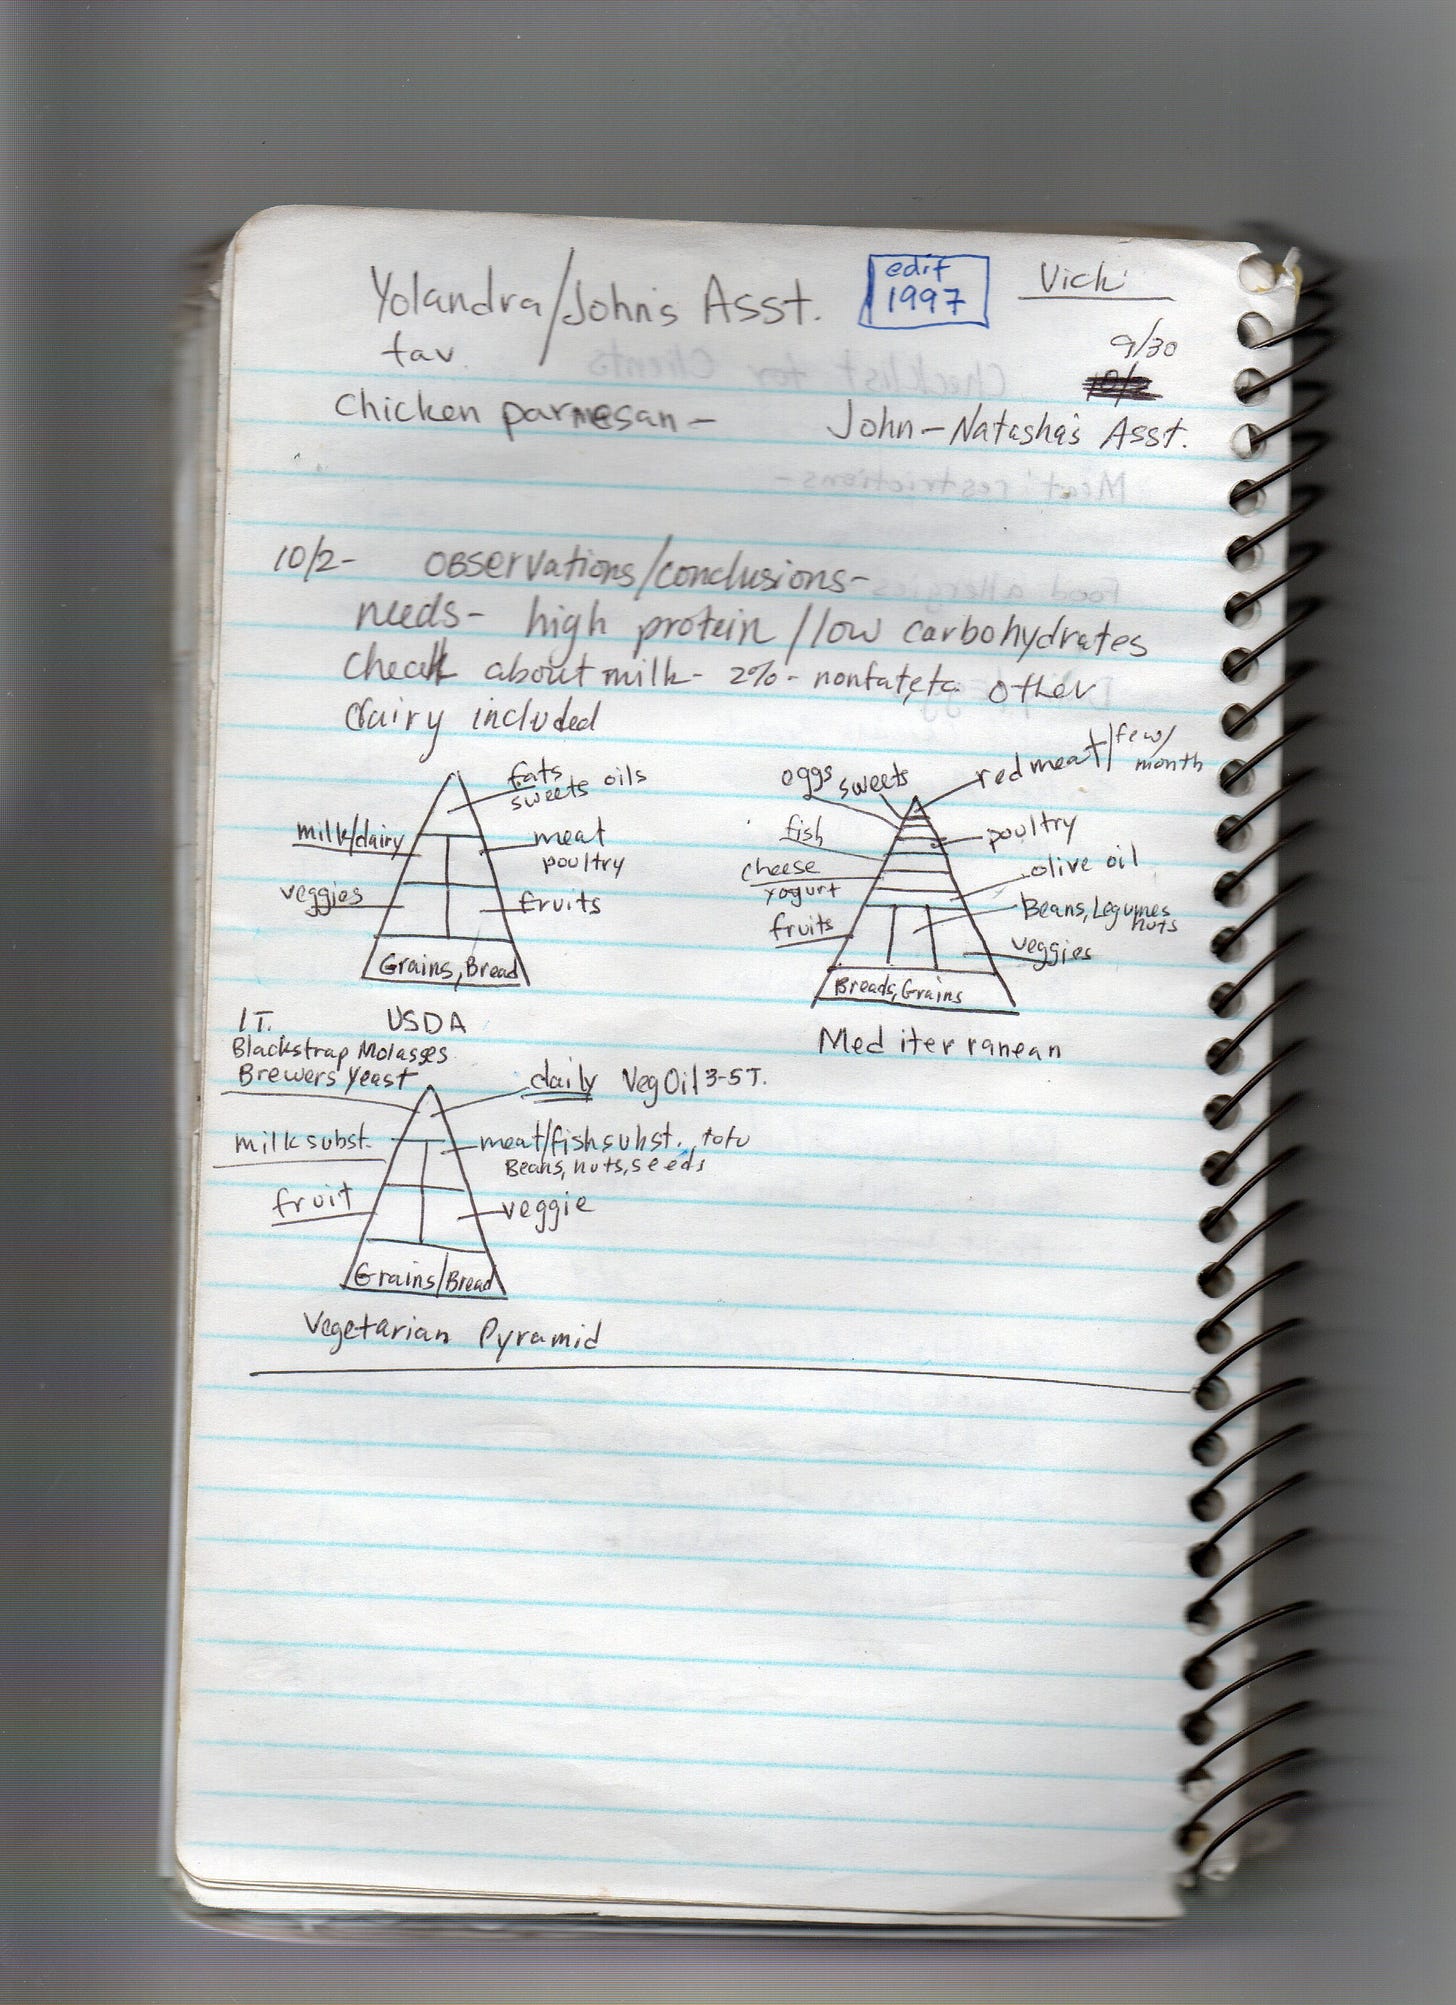 Yolandra/John's Asst.
edit
1997
Vicki
fav
9/30
Chicken parmesan-
John-Natasha's Asst.
10/2- observations/conclusions-
needs- high protein/low carbohydrates
check about milk- 2%- nonfat,etc. other
dairy included
fats
sweets oils
milk/dairy
meat
poultry
veggies
fruits
Grains, Bread
USDA
eggs
sweets
red meat/few/
month
fish
poultry
cheese
yogurt
olive oil
Beans, Legumes
nuts
fruits
veggies
Breads, Grains
Mediterranean
1T.
Blackstrap Molasses
Brewers Yeast
daily Veg Oil 3-5T.
milk subst.
meat/fish subst. tofu
Beans, nuts, seeds
fruit
veggie
Grains/Bread
Vegetarian Pyramid